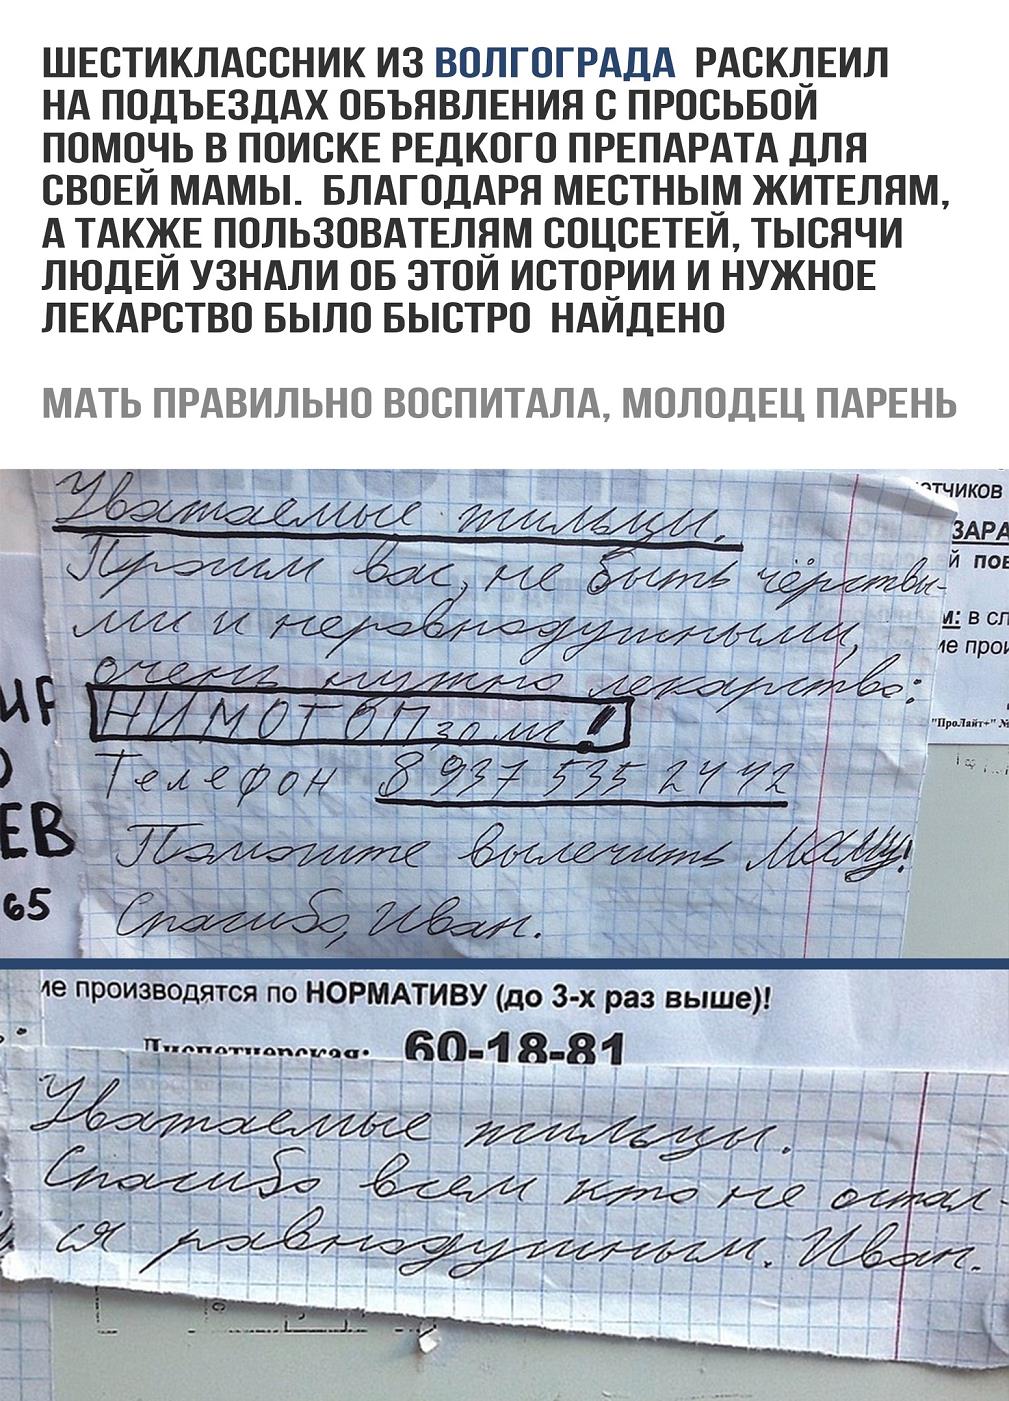 ШЕСТИКЛАССНИК ИЗ ВОЛГОГРАДА РАСКЛЕИЛ
НА ПОДЪЕЗДАХ ОБЪЯВЛЕНИЯ С ПРОСЬБОЙ
ПОМОЧЬ В ПОИСКЕ РЕДКОГО ПРЕПАРАТА ДЛЯ
СВОЕЙ МАМЫ. БЛАГОДАРЯ МЕСТНЫМ ЖИТЕЛЯМ,
А ТАКЖЕ ПОЛЬЗОВАТЕЛЯМ СОЦСЕТЕЙ, ТЫСЯЧИ
ЛЮДЕЙ УЗНАЛИ ОБ ЭТОЙ ИСТОРИИ И НУЖНОЕ
ЛЕКАРСТВО БЫЛО БЫСТРО НАЙДЕНО
МАТЬ ПРАВИЛЬНО ВОСПИТАЛА, МОЛОДЕЦ ПАРЕНЬ
Уважаемые жильцы.
Просим вас, не быть чёрствы-
ми и неравнодушными,
очень нужно лекарство:
НИМОТОП 30 мг!
Телефон 8 937 535 24 42
Помогите вылечить Маму!
Спасибо, Иван.
ЕВ
65
ЗАРА
й пов
м: в сл
ие прои
"ПроЛайт+" №
ие производятся по НОРМАТИВУ (до 3-х раз выше)!
Диспетчерская: 60-18-81
Уважаемые жильцы.
Спасибо всем кто не остал-
ся равнодушным. Иван.